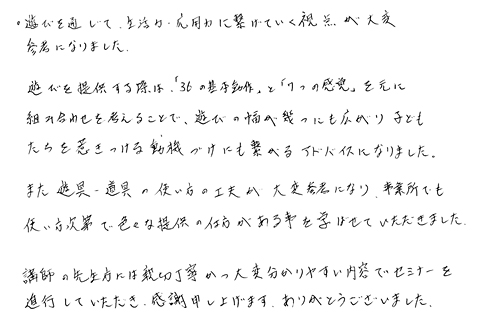 ・遊びを通じて、生活力・応用力に繋げていく視点が大変
参考になりました。
遊びを提供する際は、「36の基本動作」と「7つの感覚」を元に
組み合わせを考えることで、遊びの幅が幾つにも広がり子ども
たちを惹きつける動機づけにも繋がるアドバイスになりました。
また遊具・道具の使い方の工夫が大変参考になり、事業所でも
使い方次第で色々な提供の仕方がある事を学ばせていただきました。
講師の先生方には親切丁寧かつ大変分かりやすい内容でセミナーを
進行していただき、感謝申し上げます。ありがとうございました。